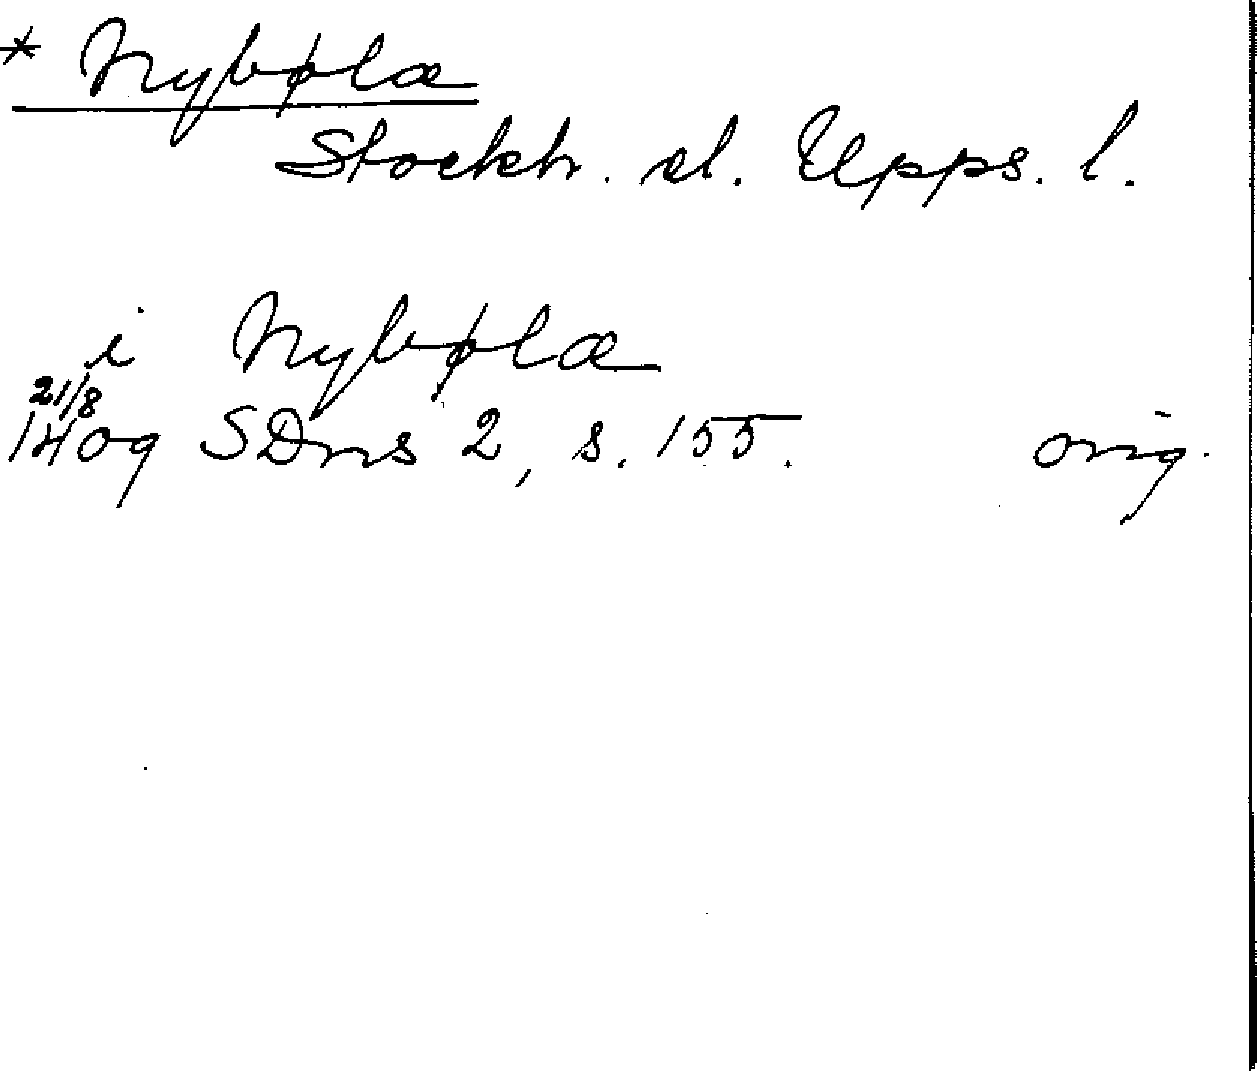 * Nybølæ
Stockh. el. Upps. l.
i Nybølæ
21/8
1409 SDns 2, s. 155. orig.